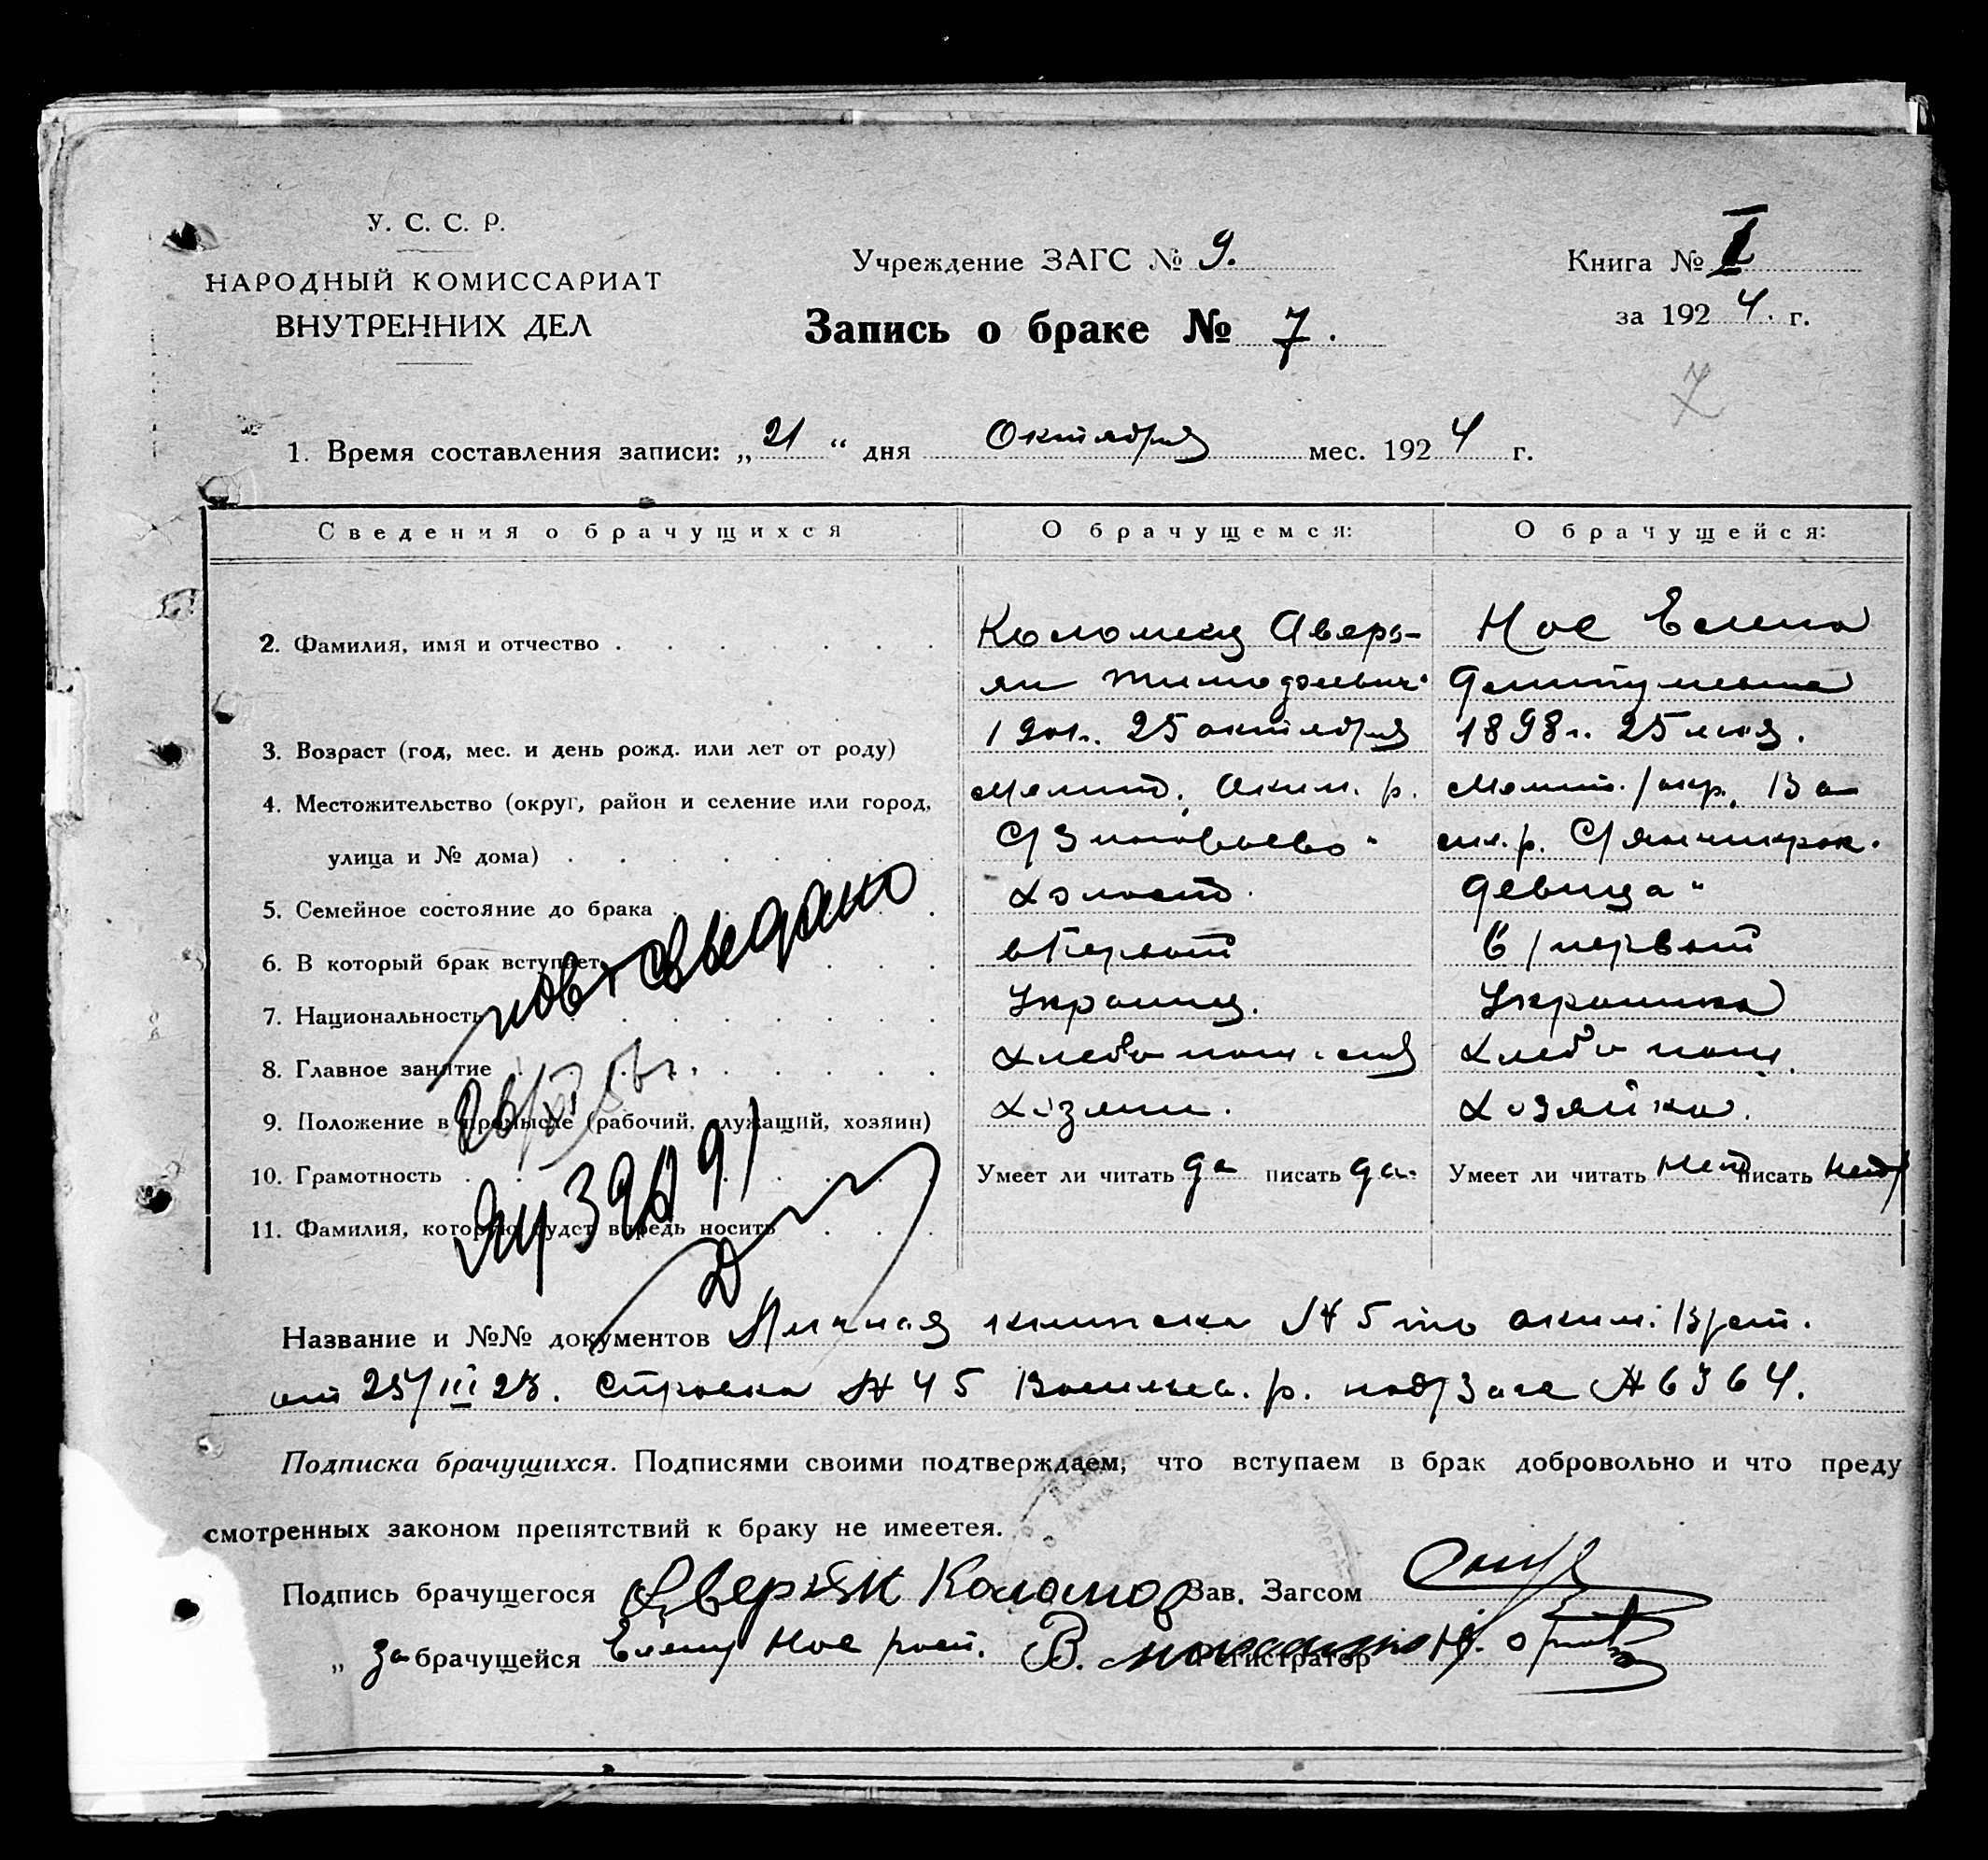 У. С. С. Р.
НАРОДНЫЙ КОМИССАРИАТ
ВНУТРЕННИХ ДЕЛ
Учреждение ЗАГС № 9.
Книга № I
Запись о браке № 7.
за 1924. г.
7
1. Время составления записи: „21“ дня Октября мес. 1924 г.
Сведения о брачущихся О брачущемся: О брачущейся:
2. Фамилия, имя и отчество Коломоец Аверь- Ное Елена
ян Тимофеевич
3. Возраст (год, мес. и день рожд. или лет от роду) 1901г. 25 октября 1898г. 25 мая.
4. Местожительство (округ, район и селение или город, Мелит. Аким. р. Мелит. окр, Ва
улица и № дома) с Зиновьево сил. р. с Янчикрак.
5. Семейное состояние до брака холост. девица
6. В который брак вступает в Первый в первый
7. Национальность Украинец. Украинка
8. Главное занятие Хлебопаш. Хлебопаш.
9. Положение в промысле (рабочий, служащий, хозяин) Хозяин. Хозяйка.
10. Грамотность Умеет ли читать да писать да. Умеет ли читать нет писать нет
11. Фамилия, которую будет впредь носить
пов. св выдано
Название и №№ документов Личная книжка № 5 Аким.
от 25/III 23. Справка № 45 Васильев. р. под Загс № 6364.
Подписка брачущихся. Подписями своими подтверждаем, что вступаем в брак добровольно и что преду
смотренных законом препятствий к браку не имеется.
Подпись брачущегося Аверян Коломое Зав. Загсом
„ за брачущейся Елену Ное росп. В. Регистратор